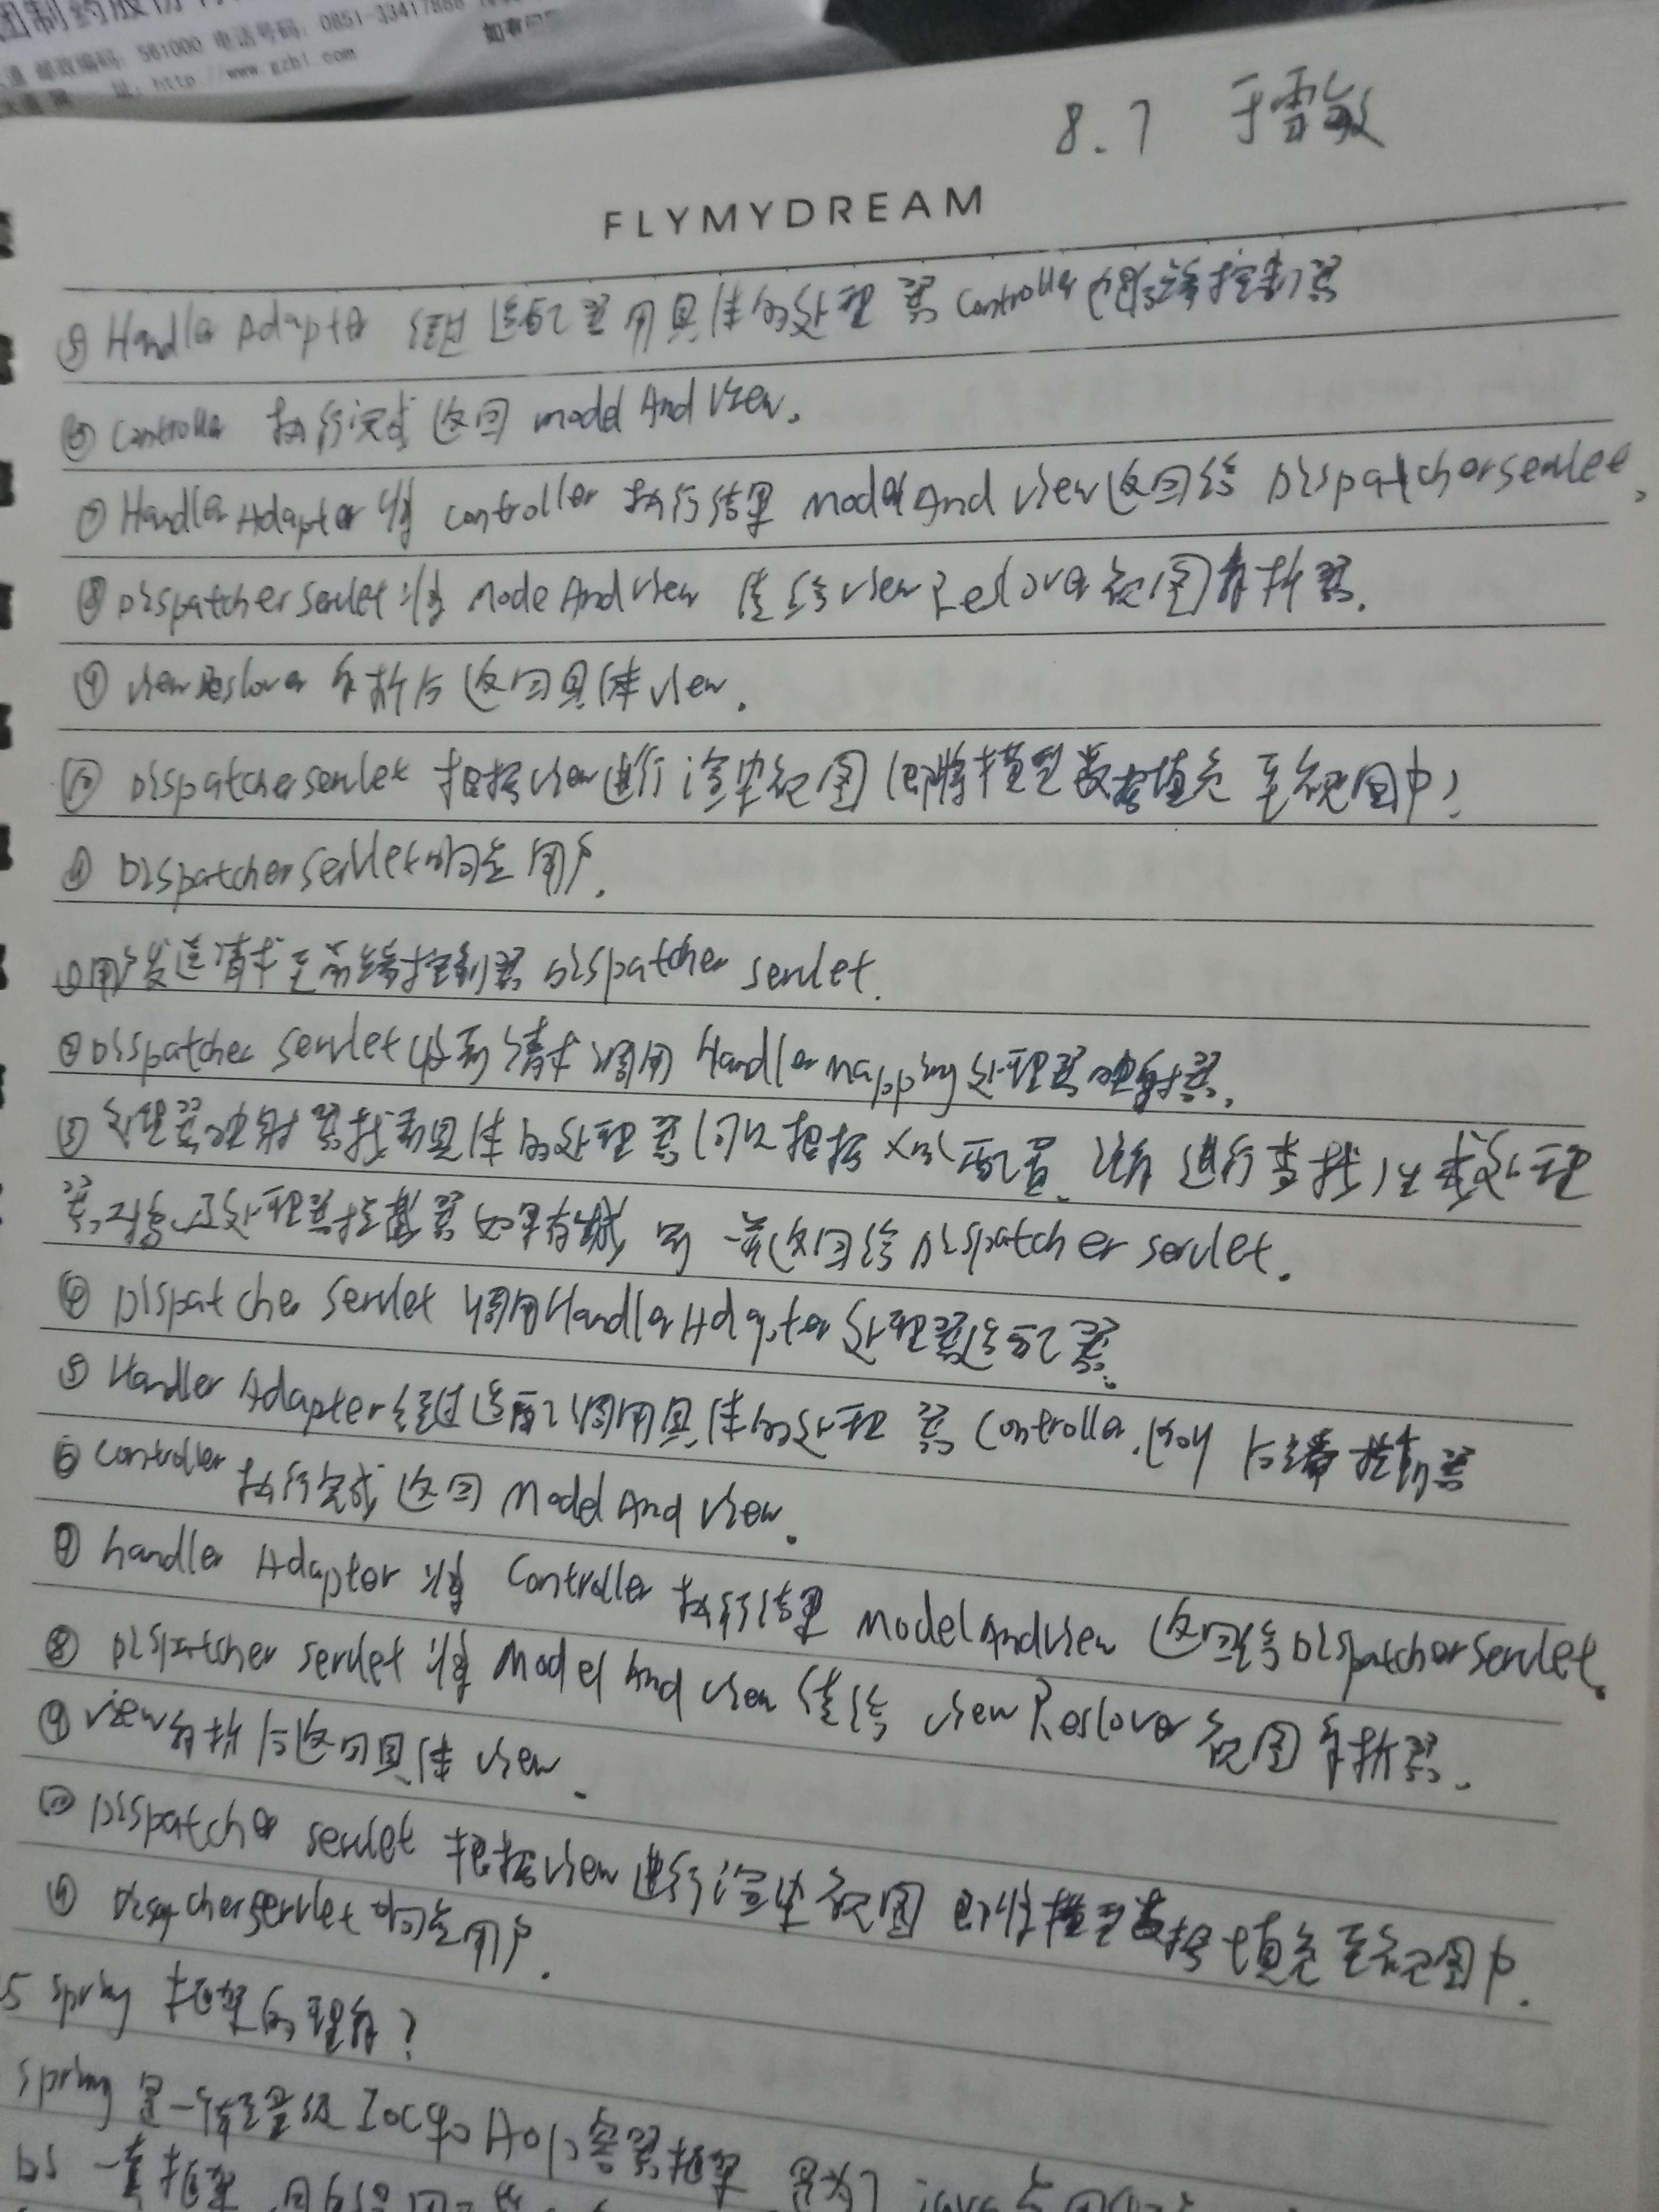 团制药股份
邮政编码: 561000 电话号码: 0851-33417888
址: http://www.gzbl.com
如有问
8.7 于雪敏
FLYMYDREAM
⑤ Handler Adapter 经过适配器用具体的处理器 Controller 也叫后端控制器
⑥ Controller 执行完成返回 model And View.
⑦ Handler Adapter 将 controller 执行结果 model And View 返回给 Dispatcherservlet.
⑧ Dispatcher servlet 将 Mode And View 传给 view Reslover 视图解析器.
⑨ view Reslover 解析后返回具体 view.
⑩ Dispatcher servlet 根据 view 进行渲染视图(即将模型数据填充至视图中)
⑪ Dispatcher servlet 响应用户.
①用户发送请求至前端控制器 Dispatcher servlet.
② Dispatcher servlet 收到请求调用 Handler Mapping 处理器映射器.
③ 处理器映射器找到具体的处理器(可以根据 xml 配置、注解进行查找)生成处理
器对象及处理器拦截器如果有则 一并返回给 Dispatcher servlet.
④ Dispatcher servlet 调用 Handler Adapter 处理器适配器.
⑤ Handler Adapter 经过适配调用具体的处理器 Controller, 后端控制器
⑥ Controller 执行完成返回 Model And View.
⑦ handler Adapter 将 Controller 执行结果 Model And View 返回给 Dispatcher Servlet.
⑧ Dispatcher servlet 将 Model And View 传给 view Reslover 视图解析器.
⑨ view 解析后返回具体 view.
⑩ Dispatcher servlet 根据 view 进行渲染视图 即将模型数据填充至视图中.
⑪ servlet 响应用户.
5 spring 框架的理解?
spring 是一轻量级 Ioc 和 Aop 容器框架 是为了 java
一套框架